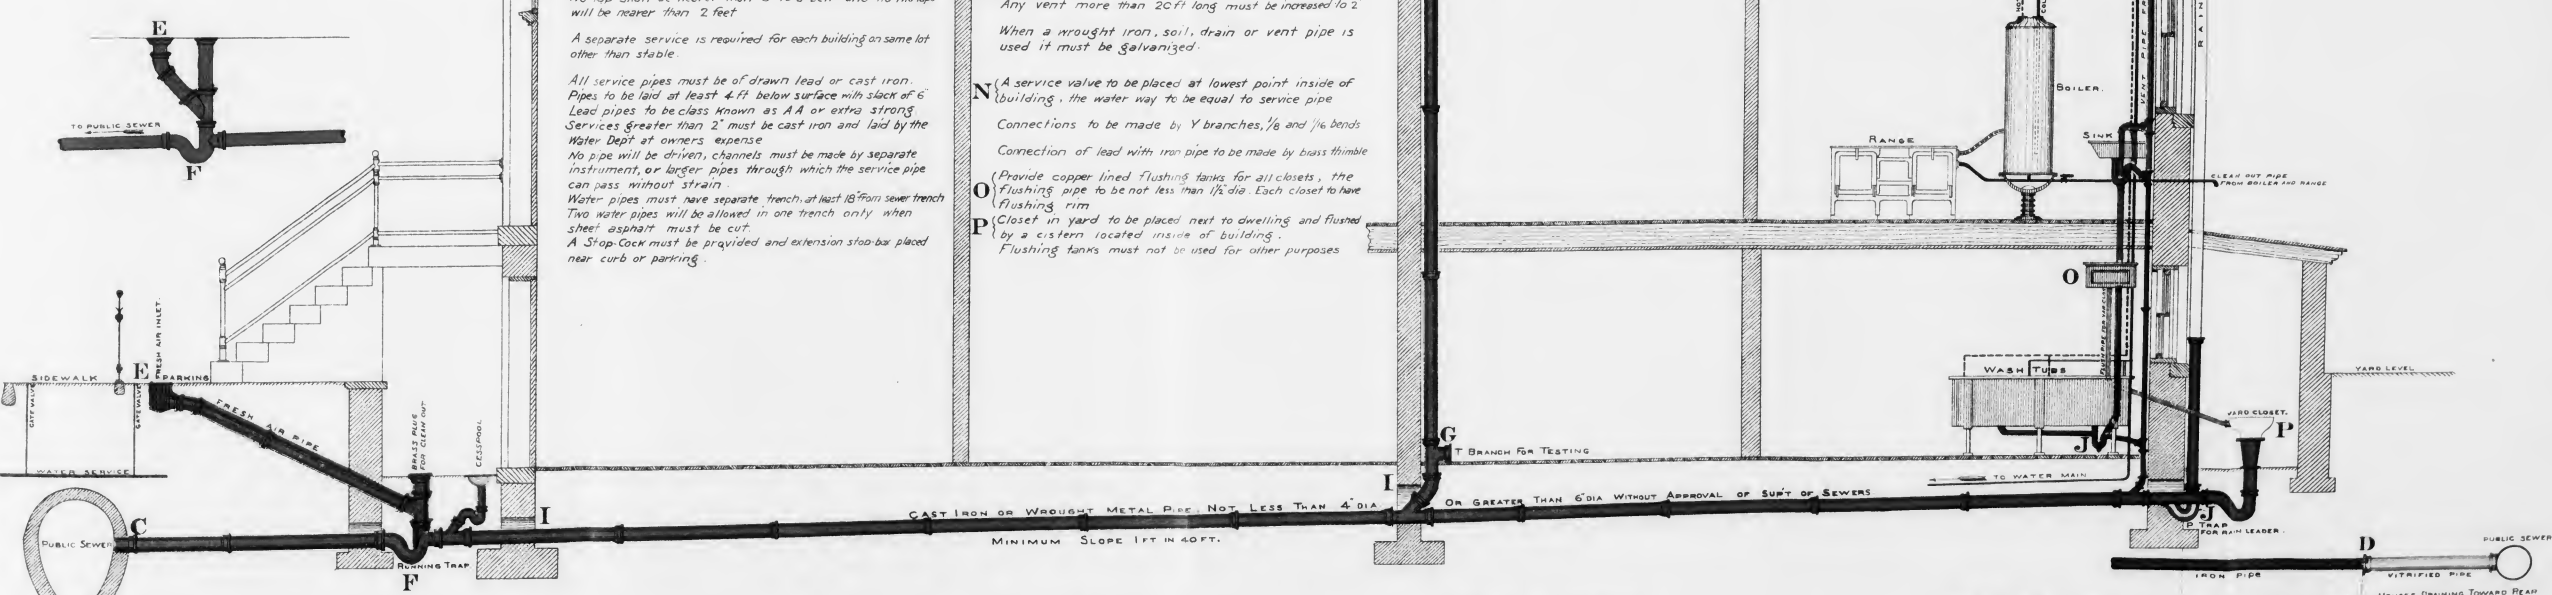 will be nearer than 2 feet
A separate service is required for each building on same lot
other than stable.
All service pipes must be of drawn lead or cast iron.
Pipes to be laid at least 4 ft below surface with slack of 6"
Lead pipes to be class known as A A or extra strong.
Services greater than 2" must be cast iron and laid by the
Water Dep't at owners expense
No pipe will be driven, channels must be made by separate
instrument, or larger pipes through which the service pipe
can pass without strain.
Water pipes must have separate trench, at least 18" from sewer trench
Two water pipes will be allowed in one trench only when
sheet asphalt must be cut.
A Stop-Cock must be provided and extension stop-box placed
near curb or parking.
Any vent more than 20 ft long must be increased to 2"
When a wrought iron, soil, drain or vent pipe is
used it must be galvanized.
N { A service valve to be placed at lowest point inside of
building, the water way to be equal to service pipe
Connections to be made by Y branches, 1/8 and 1/16 bends
Connection of lead with iron pipe to be made by brass thimble
O { Provide copper lined flushing tanks for all closets, the
flushing pipe to be not less than 1½" dia. Each closet to have
flushing rim
P { Closet in yard to be placed next to dwelling and flushed
by a cistern located inside of building.
Flushing tanks must not be used for other purposes
E
TO PUBLIC SEWER
F
RANGE
BOILER.
SINK
VENT PIPE
RAIN
CLEAN OUT PIPE
FROM BOILER AND RANGE
O
WASH TUBS
YARD LEVEL
YARD CLOSET.
P
J
SIDEWALK
GATE VALVE
GATE VALVE
E
FRESH AIR INLET.
PARKING
FRESH AIR PIPE
WATER SERVICE
BRASS PLUG
FOR CLEAN OUT
CESSPOOL
G
T BRANCH FOR TESTING
TO WATER MAIN
I
I
C
PUBLIC SEWER
CAST IRON OR WROUGHT METAL PIPE. NOT LESS THAN 4" DIA
OR GREATER THAN 6" DIA WITHOUT APPROVAL OF SUP'T OF SEWERS
MINIMUM SLOPE 1 FT IN 40 FT.
RUNNING TRAP
F
J
P TRAP
FOR RAIN LEADER.
D
PUBLIC SEWER
IRON PIPE
VITRIFIED PIPE
HOUSES DRAINING TOWARD REAR